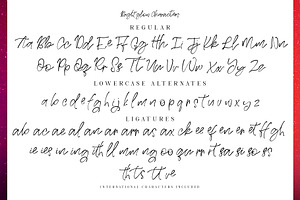 Brightglow Characters
REGULAR
Aa Bb Cc Dd Ee Ff Gg Hh Ii Jj Kk Ll Mm Nn
Oo Pp Qq Rr Ss Tt Uu Vv Ww Xx Yy Zz
LOWERCASE ALTERNATES
a b c d e f g h i j k l m n o p q r s t u v w x y z
LIGATURES
ab ac ae al an ar am as ax ck ee ef en er et ff gh
ie ies in ing ith ll mm ng oo qu rr rt sa si so ss
th ts tt ve
INTERNATIONAL CHARACTERS INCLUDED